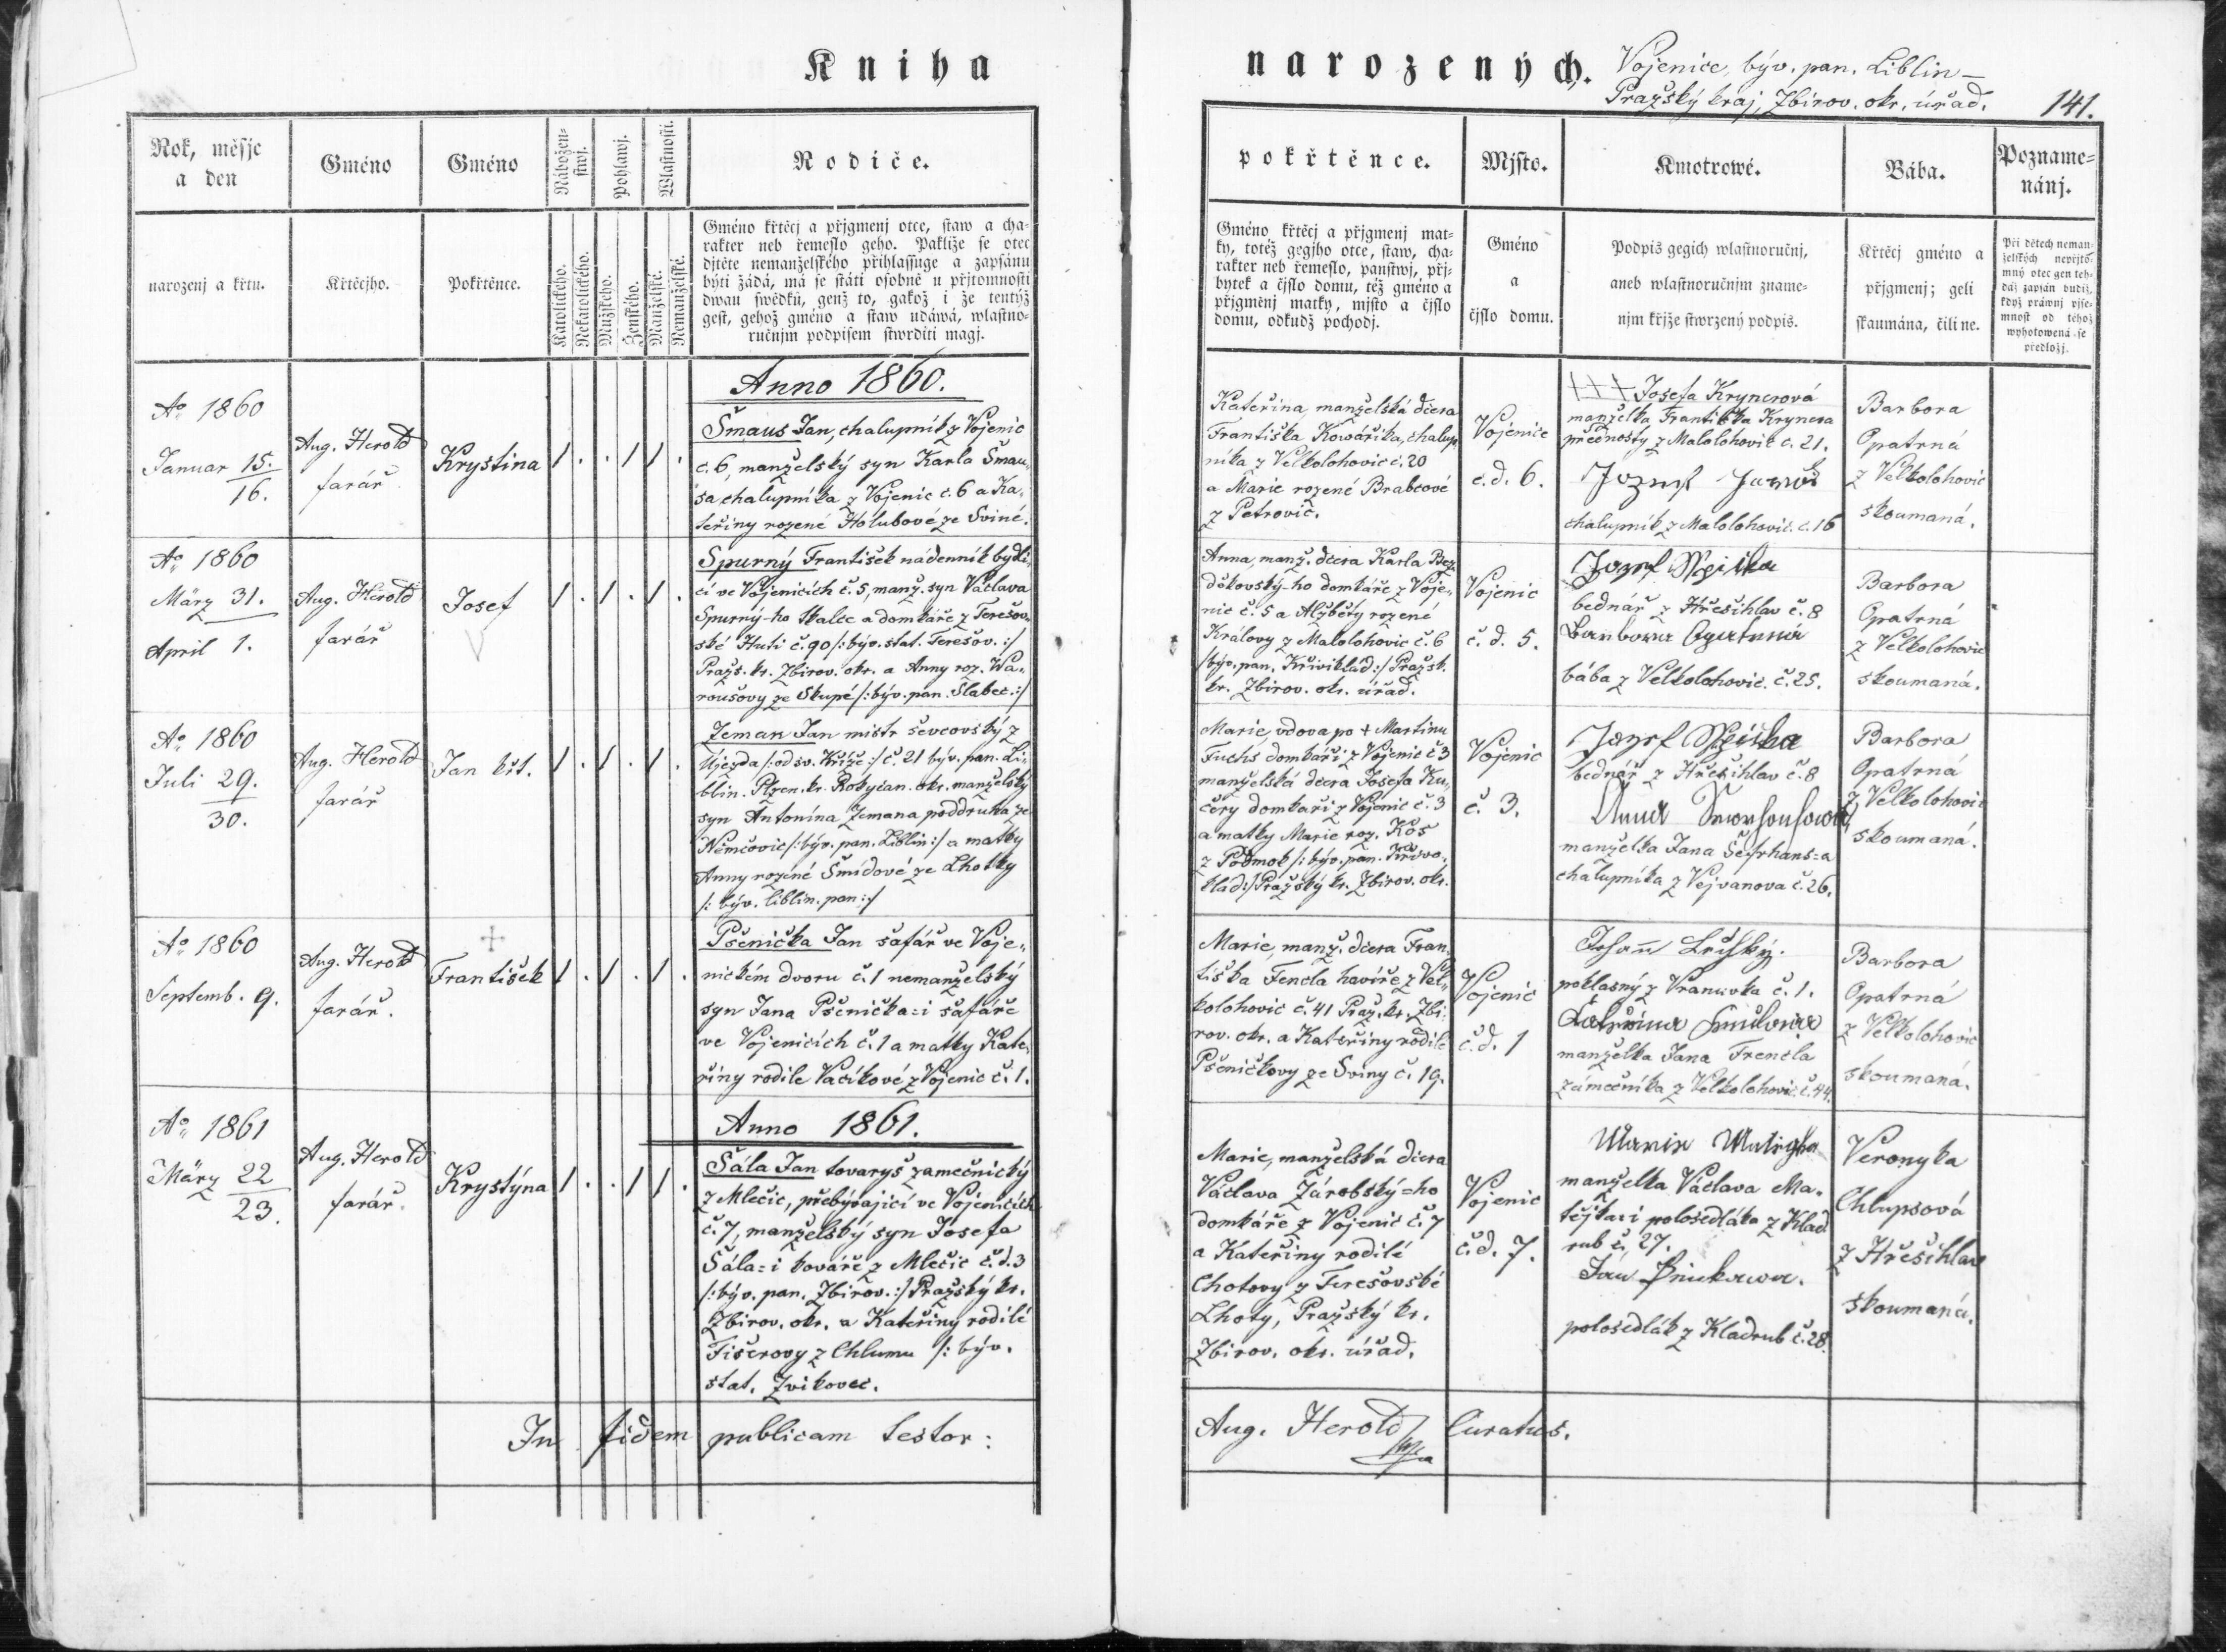 Kniha narozených.
Vojenice, býv. pan. Liblin –
Pražský kraj, Zbirov. okr. úřad.
141.
Rok, měsjc
a den
Gméno
Gméno
Nábožen=
stwj.
Pohlawj.
Wlastnosti.
Rodiče.
narozenj a křtu.
Křtěcjho.
Pokřtěnce.
Katolického.
Nekatolického.
Mužského.
Ženského.
Manželské.
Nemanželské.
Gméno křtěcj a přjgmenj otce, staw a cha=
rakter neb řemeslo geho. Pakliže se otec
djtěte nemanželského přihlassuge a zapsánu
býti žádá, má se státi osobně u přjtomnosti
dwau swědků, genž to, gakož i že tentýž
gest, gehož gméno a staw udáwá, wlastno=
ručnjm podpisem stwrditi magj.
pokřtěnce.
Mjsto.
Kmotrowé.
Bába.
Pozname=
nánj.
Gméno křtěcj a přjgmenj mat=
ky, totéž gegjho otce, staw, cha=
rakter neb řemeslo, panstwj, přj=
bytek a čjslo domu, též gméno a
přjgměnj matky, mjsto a čjslo
domu, odkudž pochodj.
Gméno
a
čjslo domu.
Podpis gegich wlastnoručnj,
aneb wlastnoručnjm zname=
njm křjže stwrzený podpis.
Křtěcj gméno a
přjgmenj; geli
skaumána, čili ne.
Při dětech neman=
želských nepřjto=
mný otec gen teh=
dáž zapsán budiž,
když práwnj pjse=
mnost od téhož
wyhotowená se
předložj.
Anno 1860.
Ao 1860
Januar 15.
16.
Aug. Herold
farář
Krystina
1 . . 1 1 .
Šmaus Jan, chalupník z Vojenic
č. 6, manželský syn Karla Šmau„
sa chalupníka z Vojenic č. 6 a Ka„
teřiny rozené Holubové ze Sviné.
Kateřina, manželská dcera
Františka Kowáříka, chalup„
níka z Velkolohovic č. 20
a Marie rozené Brabcové
z Petrovic.
Vojenice
č. d. 6.
+++ Josefa Krynerová
manželka Františka Krynera
přednosty z Malolohovic č. 21.
Jozef
chalupník z Malolohovic. č. 16
Barbora
Opatrná
z Velkolohovic
skoumaná.
Ao 1860
März 31.
April 1.
Aug. Herold
farář
Josef
1 . 1 . 1 .
Spurný František nádenník bydlí„
cí ve Vojenicích č. 5, manž. syn Václava
Spurný-ho tkalce a domkáře z Terešov„
ské Huti č. 90 /: býv. stat. Terešov. :/
Pražs. kr. Zbirov. okr. a Anny roz. Wa„
roušovy ze Skupé /: býv. pan. Slabec. :/
Anna, manž. dcera Karla Bez„
děkovský-ho domkáře z Voje„
nic č. 5 a Alžběty rozené
Královy z Malolohovic č. 6
/býv. pan. Křiviklád :/ Pražsk.
kr. Zbirov. okr. úřad.
Vojenic
č. d. 5.
Jozef
bednář z Hřešihlav č. 8
Barbora Opatrná
bába z Velkolohovic. č. 25.
Barbora
Opatrná
z Velkolohovic
skoumaná.
Ao 1860
Juli 29.
30.
Aug. Herold
farář
Jan křt.
1 . 1 . 1 .
Zeman Jan mistr ševcovský z
Újezda /: od sv. Kříže :/ č. 21 býv. pan. Li„
blin. Plzen. kr. Rokycan. okr. manželský
syn Antonína Zemana poddruha ze
Němčovic /: býv. pan. Liblin :/ a matky
Anny rozené Šmídové ze Lhotky
/: býv. liblin. pan :/
Marie, vdova po + Martinu
Fuchs domkáři z Vojenic č 3
manželská dcera Josefa Ku„
čery domkáři z Vojenic č. 3
a matky Marie roz. Kos
z Podmok /: býv. pan. Křivo„
klad :/ Pražský kr. Zbirov. okr.
Vojenic
č. 3.
Jozef
bednář z Hřešihlav č. 8
Anna
manželka Jana Šefrhans=a
chalupníka z Vejvanova č. 26.
Barbora
Opatrná
z Velkolohovic
skoumaná.
Ao 1860
Septemb. 9.
Aug. Herold
farář.
+
František
1 . 1 . 1 .
Pšenička Jan šafář ve Voje„
nickém dvoru č. 1 nemanželský
syn Jana Pšenička=i šafáře
ve Vojenicích č. 1 a matky Kate„
řiny rodile Vacíkové z Vojenic č. 1.
Marie, manž. dcera Fran„
tiška Fencla havíře z Vel„
kolohovic č. 41 Praž. kr. Zbi„
rov. okr. a Kateřiny rodilé
Pšeničkovy ze Sviny č. 19.
Vojenic
č. d. 1
Johann
poklasný z Vranovka č. 1.
manželka Jana Frencla
zámečníka z Velkolohovic. č. 44.
Barbora
Opatrná
z Velkolohovic
skoumaná.
Anno 1861.
Ao 1861
März 22
23.
Aug. Herold
farář.
Krystýna
1 . . 1 1 .
Šála Jan tovaryš zamečnický
z Mlečic, přebývající ve Vojenicích
č. 7, manželský syn Josefa
Šála=i kováře z Mlečic č. d. 3
/: býv. pan. Zbirov. :/ Pražský kr.
Zbirov. okr. a Kateřiny rodilé
Fišerovy z Chlumu /: býv.
stat. Zvikovec.
Marie, manželská dcera
Václava Zárobský=ho
domkáře z Vojenic č. 7
a Kateřiny rodilé
Chotovy z Terešovské
Lhoty, Pražský kr.
Zbirov. okr. úřad.
Vojenic
č. d. 7.
Marie Matějka
manželka Václava Ma„
tějka=i polosedláka z Klad
rub č. 27.
Jan
polosedlák z Kladrub č. 28.
Veronyka
Chlupsová
z Hřešihlav
skoumaná.
In fidem publicam testor:
Aug. Herold Curatus.